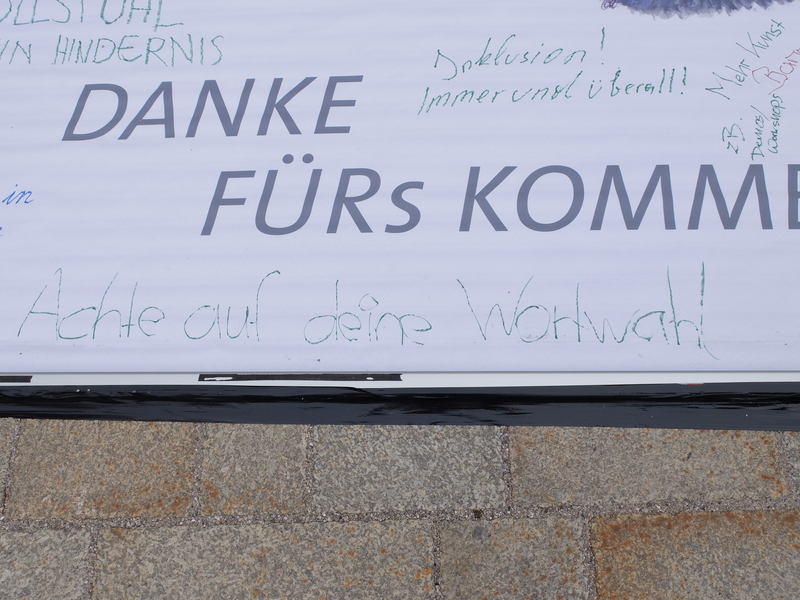 OLLSTUHL
YN HINDERNIS
Inklusion!
Immer und überall!
Mehr Kunst
zB.
Workshops
DANKE
FÜRs KOMME
in
Achte auf deine Wortwahl